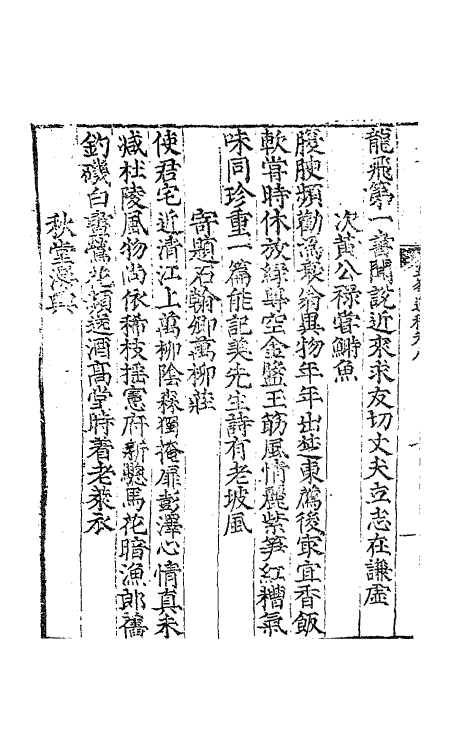 龍飛第一書聞說近來求友切丈夫立志在謙虛
次黃公祿嘗鰣魚
腹腴頻勸為聚翁異物年年出浙東薦後家宜香飯
軟嘗時休放綠尊空金盤玉筯風情麗紫笋紅糟氣
味同珍重一篇能記美先生詩有老坡風
寄題石翰卿萬柳莊
使君宅近清江上萬柳陰森獨掩扉彭澤心情真未
減杜陵風物尚依稀枝搖憲府新驄馬花暗漁郎舊
釣磯白晝鶯花頻送酒高堂時着老萊衣
秋堂漫興